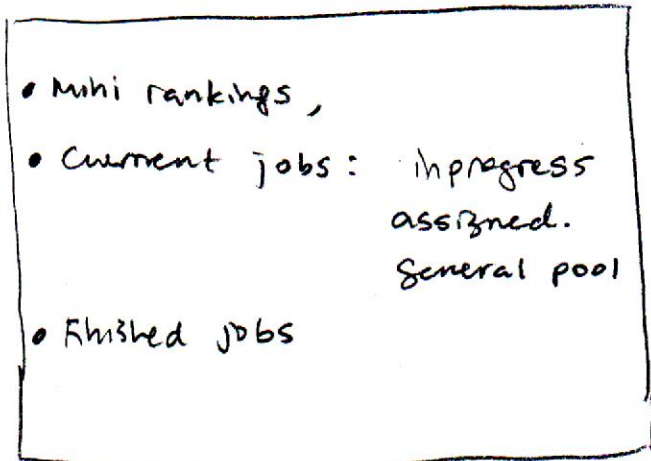 • Mini rankings,
• Current jobs: inprogress
assigned.
General pool
• Finished jobs